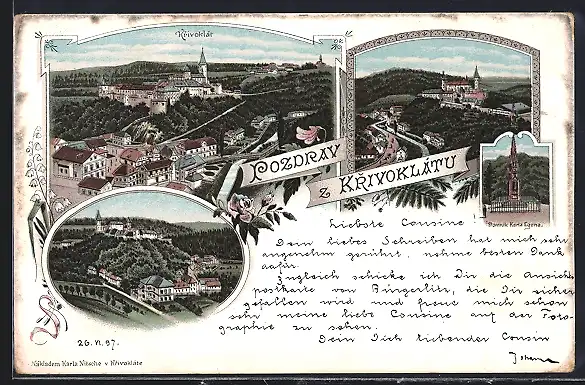 Křivoklát
POZDRAV
Z KŘIVOKLÁTU
Pomník Karla Egona.
Liebste Cousine!
Dein liebes Schreiben hat mich sehr
angenehm gerührt, nehme besten Dank
dafür.
Zugleich schicke ich Dir die Ansichts
postkarte von Bürgerlitz, die Dir sicher
gefallen wird und freue mich schon
sehr meine liebe Cousine auf der Foto-
graphie zu sehen.
Dein Dich liebender Cousin
26. VI. 97.
Nákladem Karla Nitsche v Křivokláte